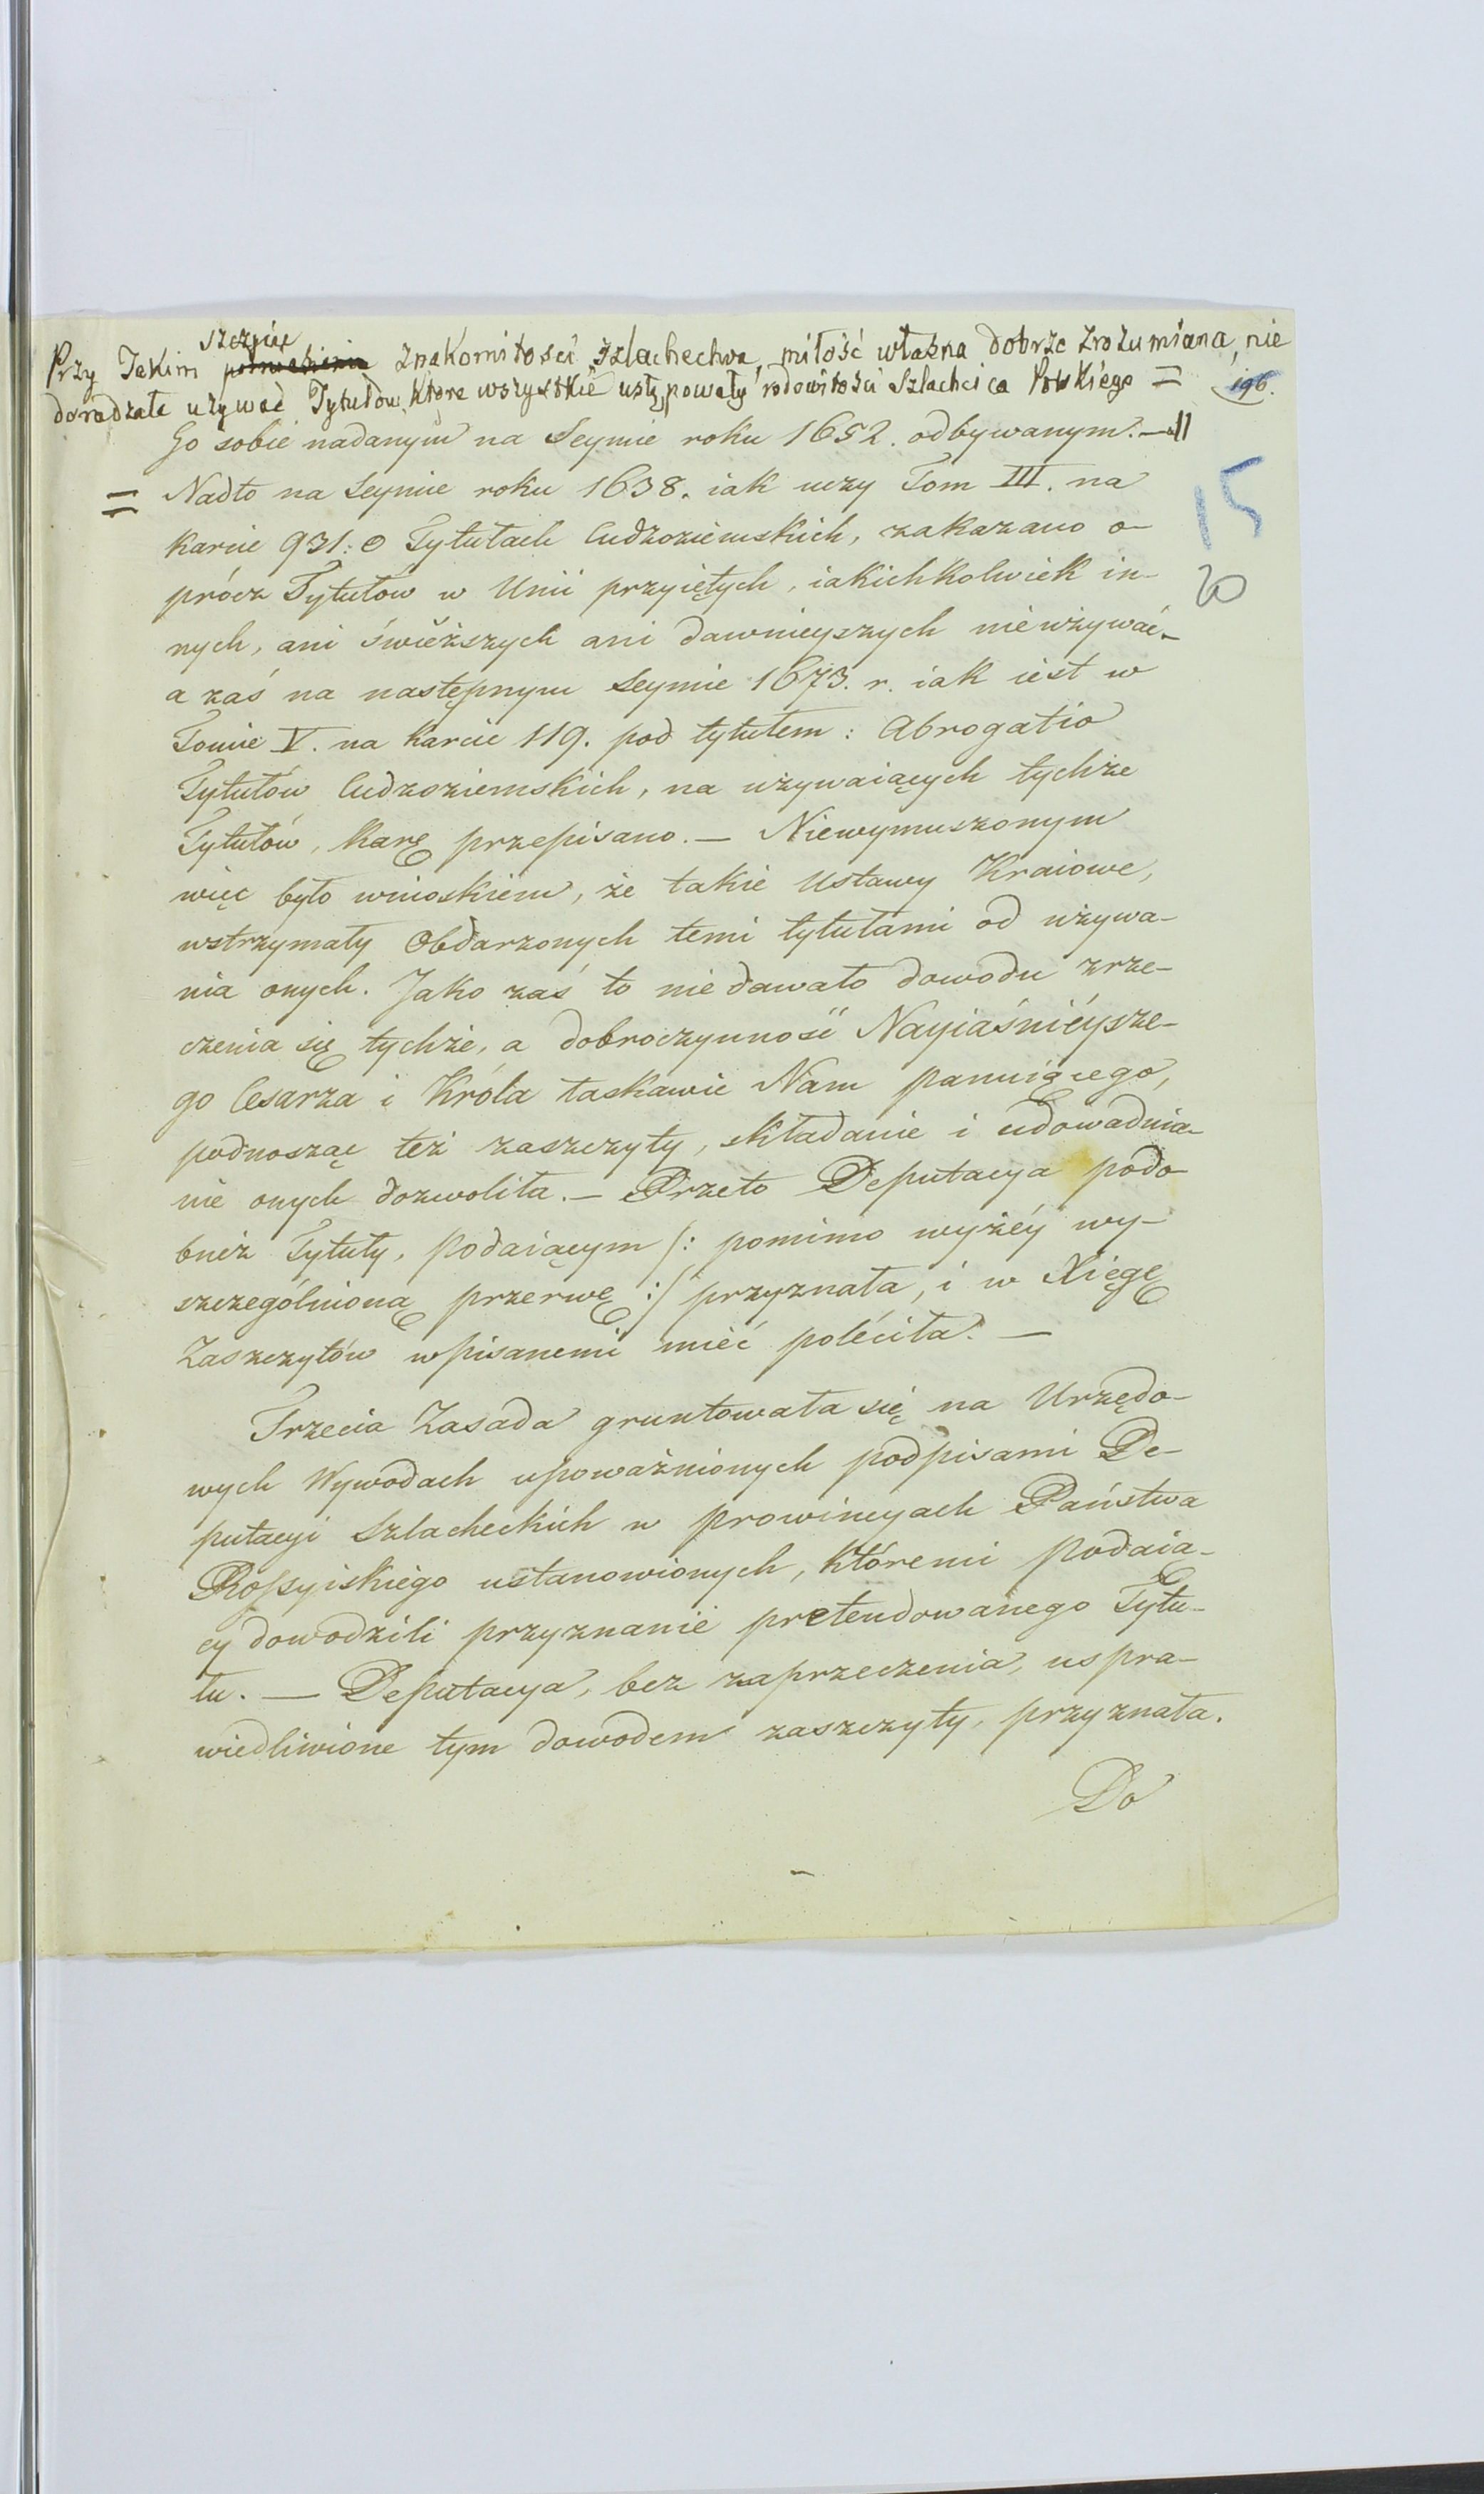 szczycie
Przy Takim znakomitości szlachectwa, miłość własna dobrze zrozumiana, nie
doradzała używać Tytułów, które wszystkie ustępowały rodowitości Szlachcica Polskiego =
196.
Go sobie nadanym na Seymie roku 1652. odbywanym. — ||
= Nadto na Seymie roku 1638. iak uczy Tom III. na
karcie 931: o Tytułach Cudzoziemskich, zakazano o-
prócz Tytułów w Unii przyiętych, iakichkolwiek in-
nych, ani świeższych ani dawnieyszych nieużywać_
a zaś na następnym Seymie 1673. r. iak iest w
Tomie V. na karcie 119. pod tytułem: Abrogatio
Tytułów Cudzoziemskich, na używaiących tychże
Tytułów, karę przepisano. — Niewymuszonym
więc było wnioskiem, że takie Ustawy Kraiowe,
wstrzymały Obdarzonych temi tytułami od używa-
nia onych. Jako zaś to nie dawało dowodu zrze-
czenia się tychże, a dobroczynność Nayiaśnieysze-
go Cesarza i Króla łaskawie Nam panuiącego,
podnosząc też zaszczyty, składanie i udowadnia-
nie onych dozwoliła. — Przeto Deputacya podo-
bneż Tytuły, podaiącym /: pomimo wyżéy wy-
szczególnioną przerwę :/ przyznała, i w Xięgę
Zaszczytów wpisanemi mieć poléciła. —
Trzecia Zasada gruntowała się na Urzędo-
wych Wywodach upoważnionych podpisami De-
putacyi Szlacheckich w prowincyach Państwa
Rossyiskiego ustanowionych, któremi podaią-
cy dowodzili przyznanie pretendowanego Tytu-
łu. — Deputacya, bez zaprzeczenia, uspra-
wiedliwione tym dowodem zaszczyty, przyznała.
Do
15
20